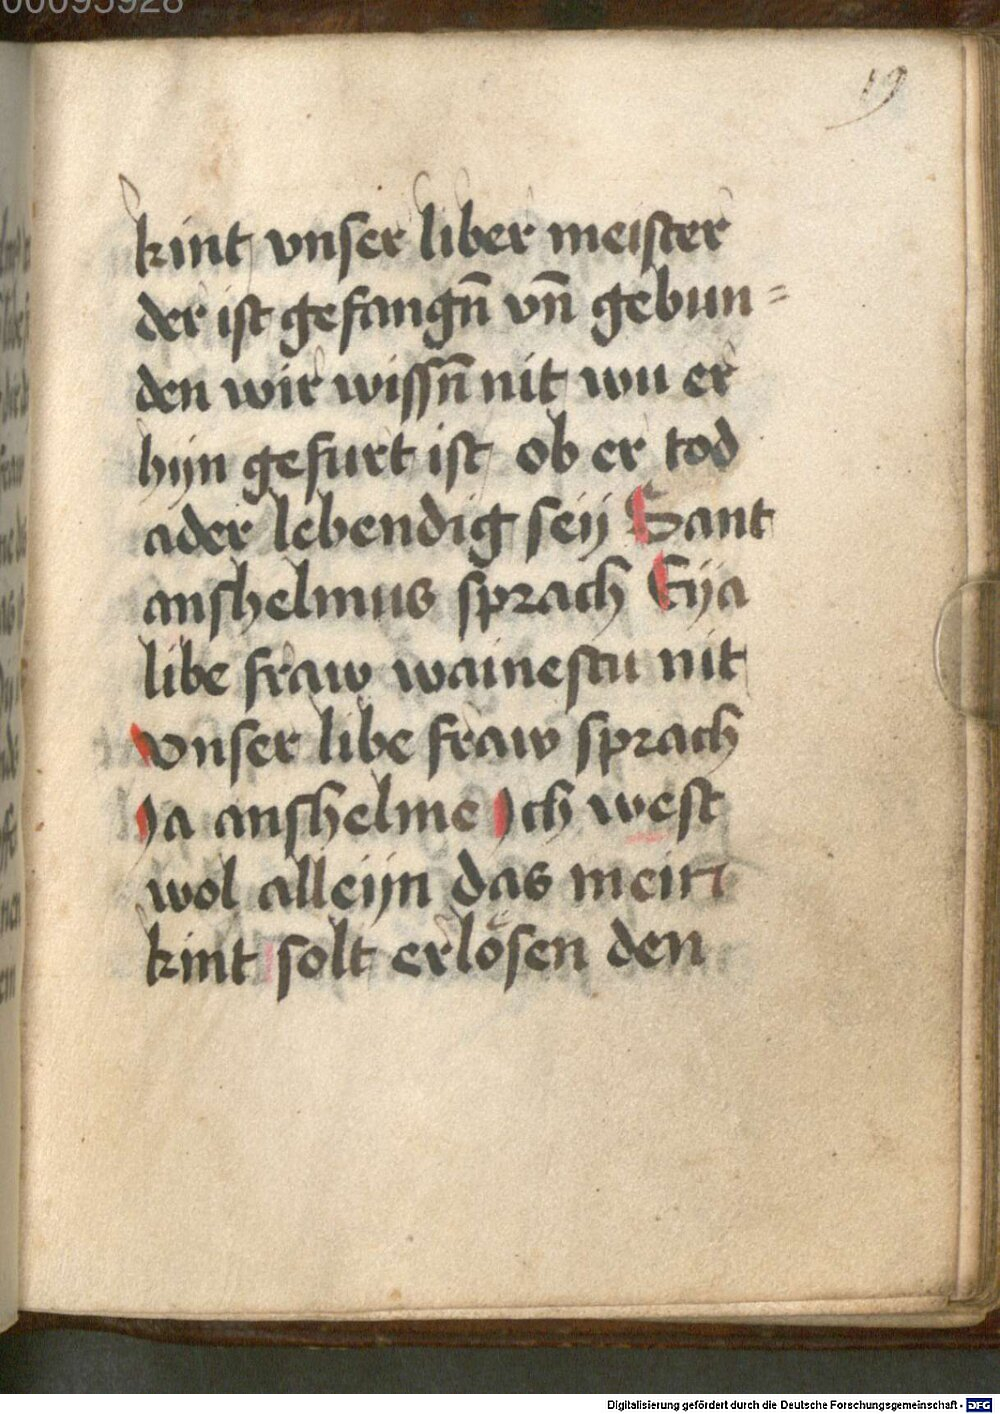 00095928
19
kint vnser liber meister
der ist gefangn̄ vn̄ gebun=
den wir wissn̄ nit wu er
hyn gefurt ist ob er tod
ader lebendig seij Sant
anshelmus sprach Eija
libe fraw wainestu nit
vnser libe fraw sprach
Ja anshelme Ich west
wol alleijn das mein
kint solt erlösen den
Digitalisierung gefördert durch die Deutsche Forschungsgemeinschaft - DFG